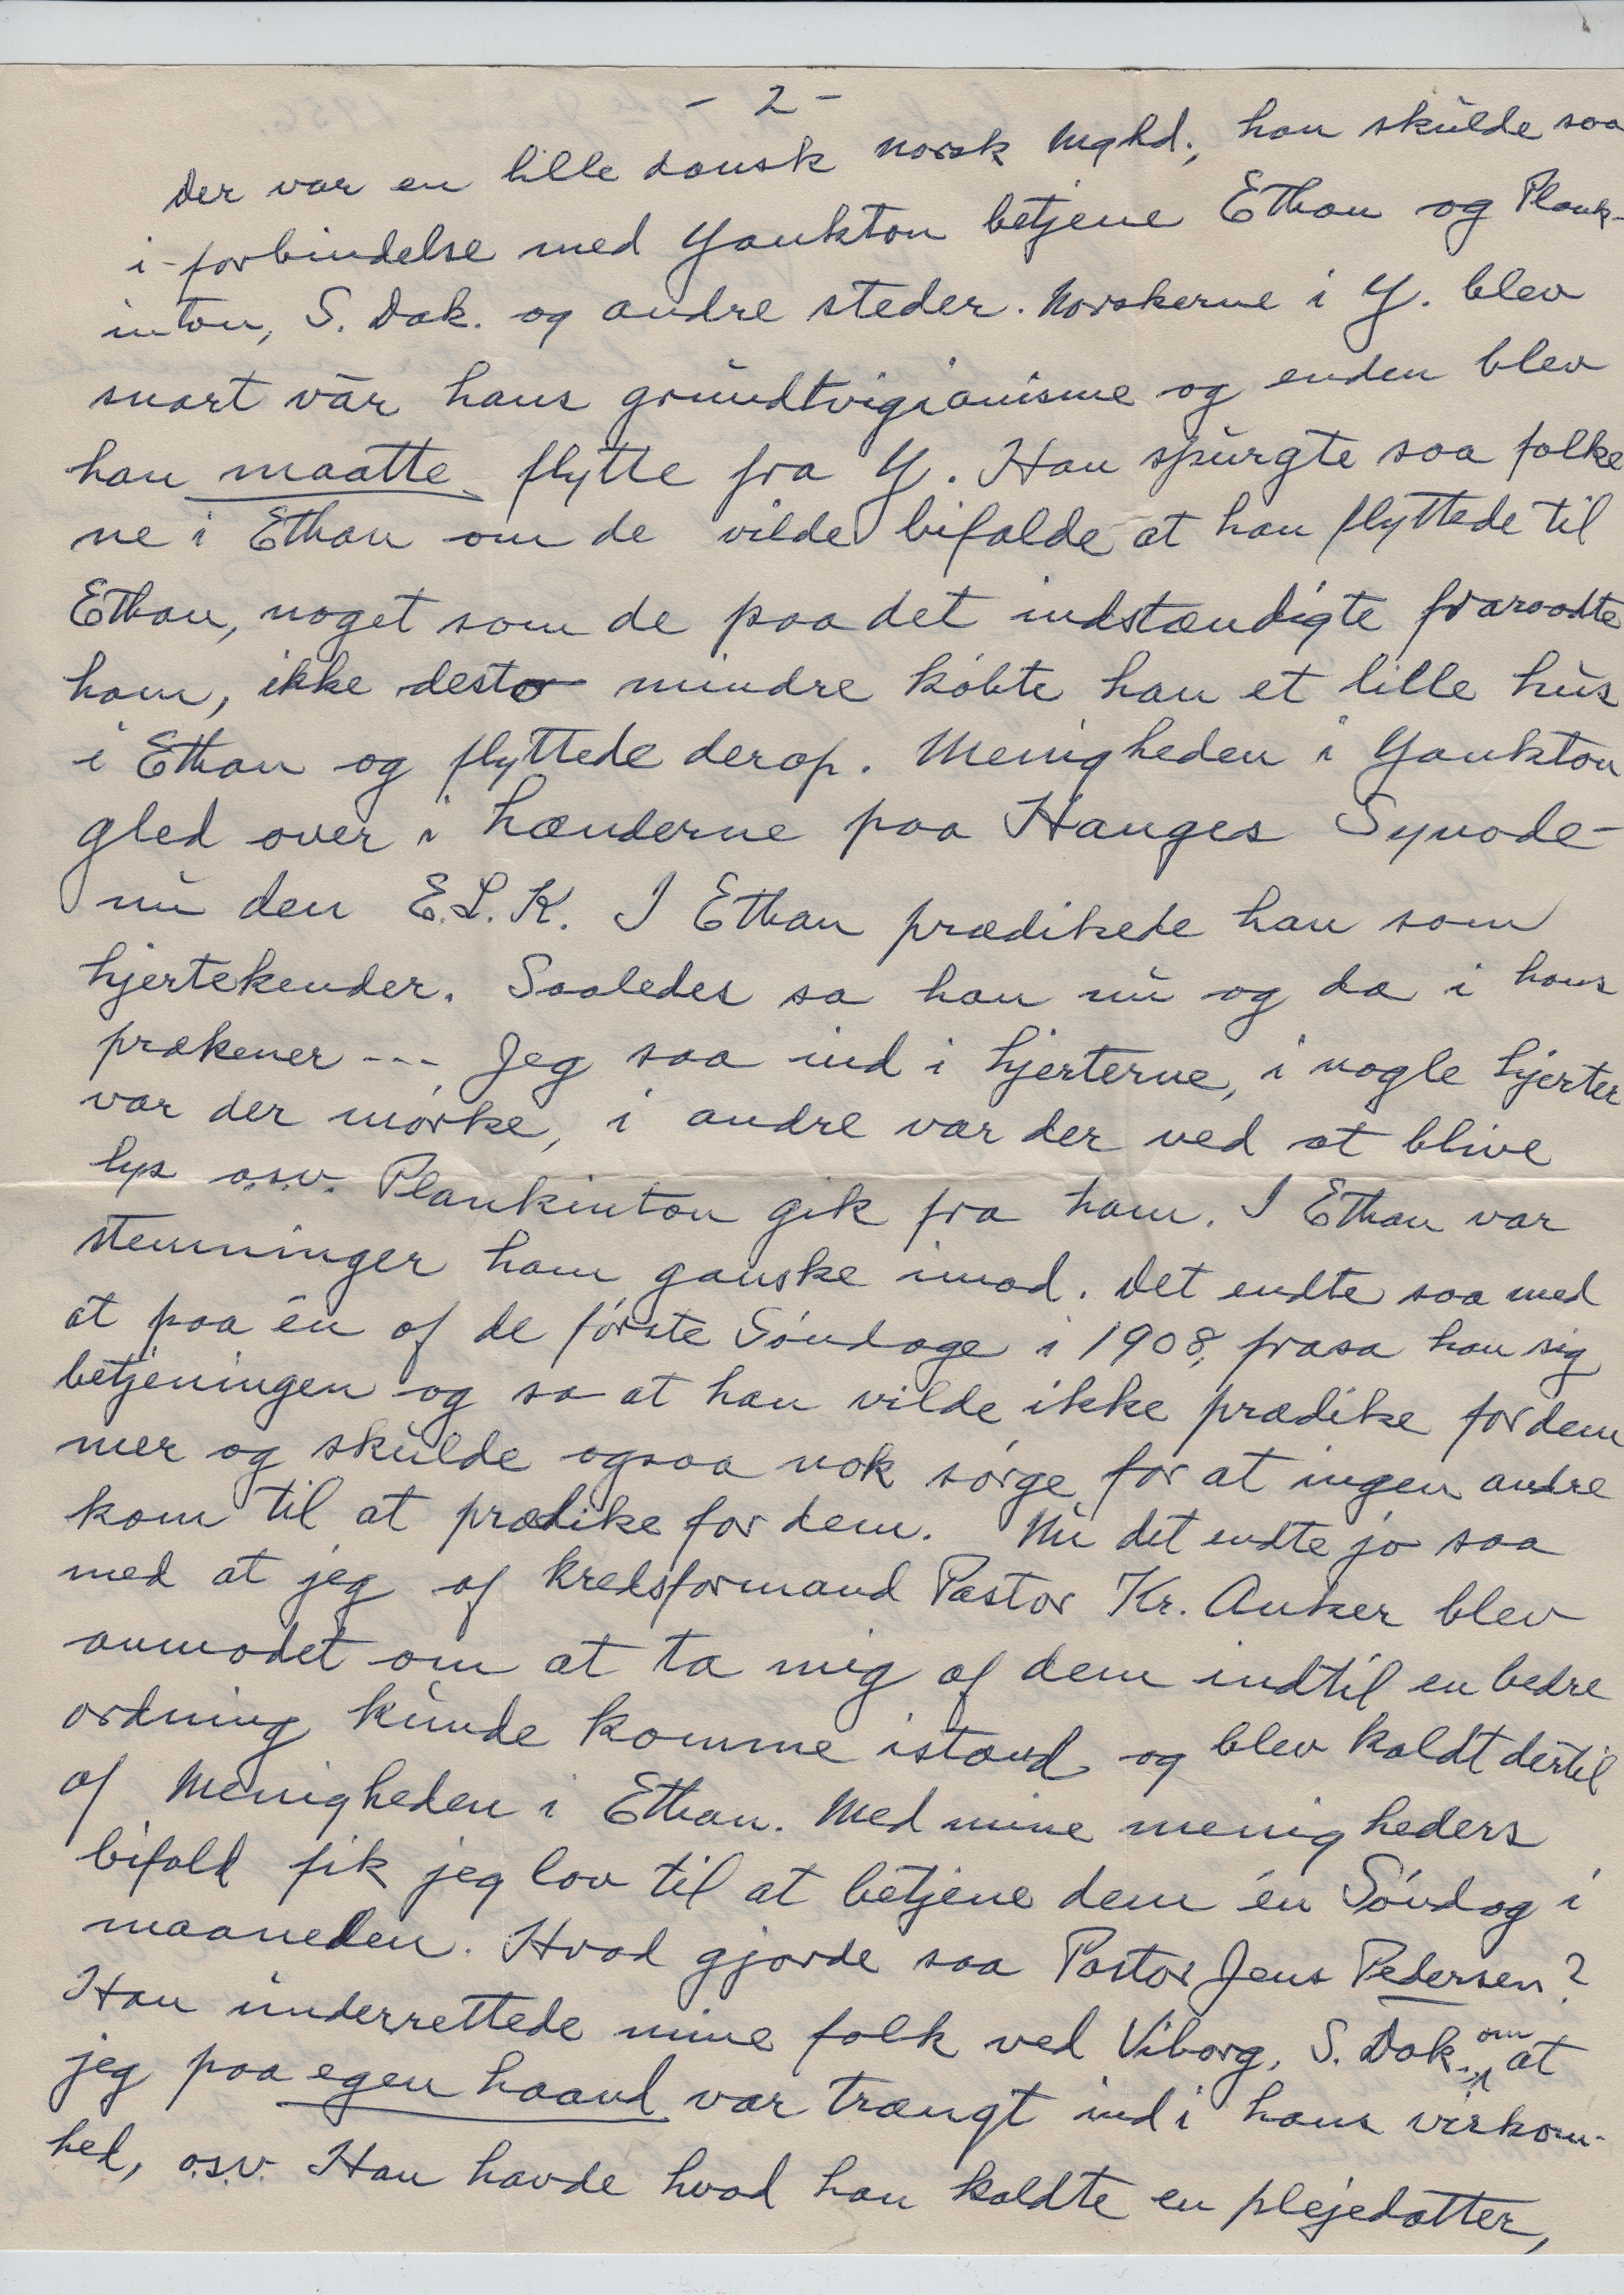 - 2 -
Der var en lille dansk norsk Mghd., han skulde saa
i forbindelse med Yankton betjene Ethan og Plank-
inton, S. Dak. og andre steder. Norskerne i Y. blev
snart vár hans grundtvigianisme og enden blev
han maatte flytte fra Y. Han spurgte saa folke
ne i Ethan om de vilde bifalde at han flyttede til
Ethan, noget som de paa det indstændigte fraraadte
ham, ikke desto mindre kóbte han et lille hus
i Ethan og flyttede derop. Menigheden i Yankton
gled over i hænderne paa Hauges Synode-
nu den E.L.K. I Ethan prædikede han som
hjertekender. Saaledes sa han nu og da i hans
prækener --- Jeg saa ind i hjerterne, i nogle hjerter
var der mórke, i andre var der ved at blive
lys o.s.v. Plankinton gik fra ham. I Ethan var
stemninger ham ganske imod. Det endte saa med
at paa én af de fórste Sóndage i 1908, frasa han sig
betjeningen og sa at han vilde ikke prædike for dem
mer og skulde ogsaa nok sórge for at ingen andre
kom til at prædike for dem. Nu det endte jo saa
med at jeg af kredsformand Pastor Kr. Anker blev
anmodet om at ta mig af dem indtil en bedre
ordning kunde komme istand og blev kaldt dertil
af Menigheden i Ethan. Med mine menigheders
bifald fik jeg lov til at betjene dem én Sóndag i
maaneden. Hvad gjorde saa Pastor Jens Pedersen?
Han underrettede mine folk ved Viborg, S. Dak., om at
jeg paa egen haand var trængt ind i hans virksom-
hed, o.s.v. Han havde hvad han kaldte en plejedatter,